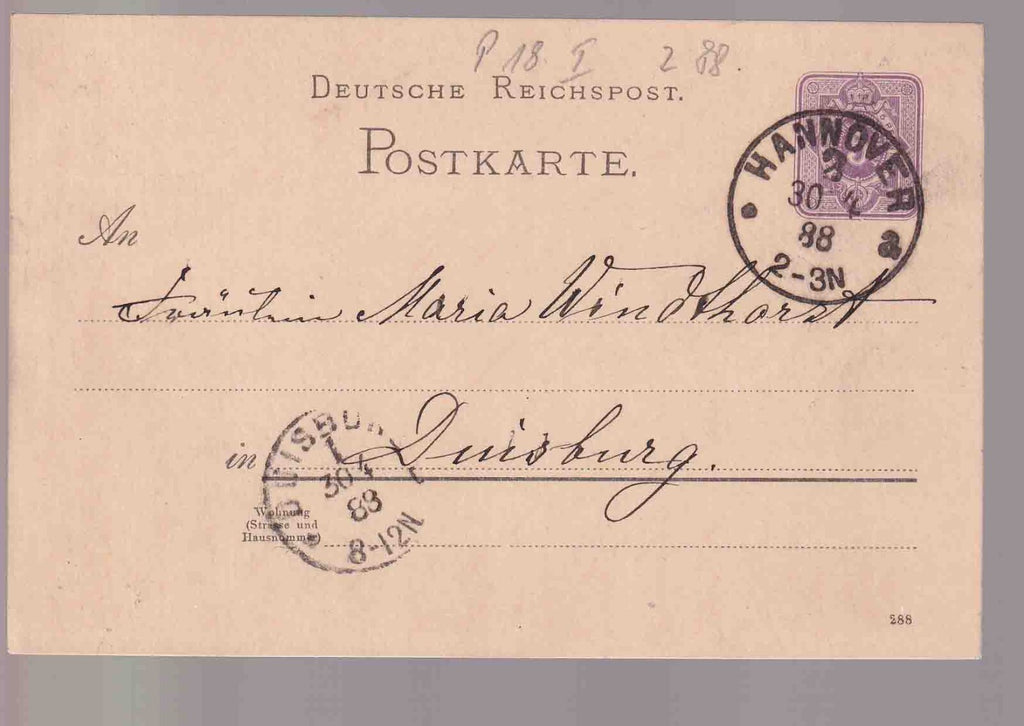 P 18 I 2 88.
DEUTSCHE REICHSPOST.
POSTKARTE.
HANNOVER
30 4
88
2-3N
An
Fräulein Maria Windthorst
DUISBUR
30 4
88
8-12N
in Duisburg.
Wohnung
(Strasse und
Hausnummer)
288